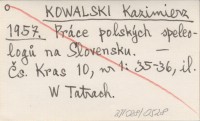 KOWALSKI Kazimierz
1957. Práce polských speleo-
logů na Slovensku. —
Čs. Kras 10, nr 1: 35-36, il.
W Tatrach.